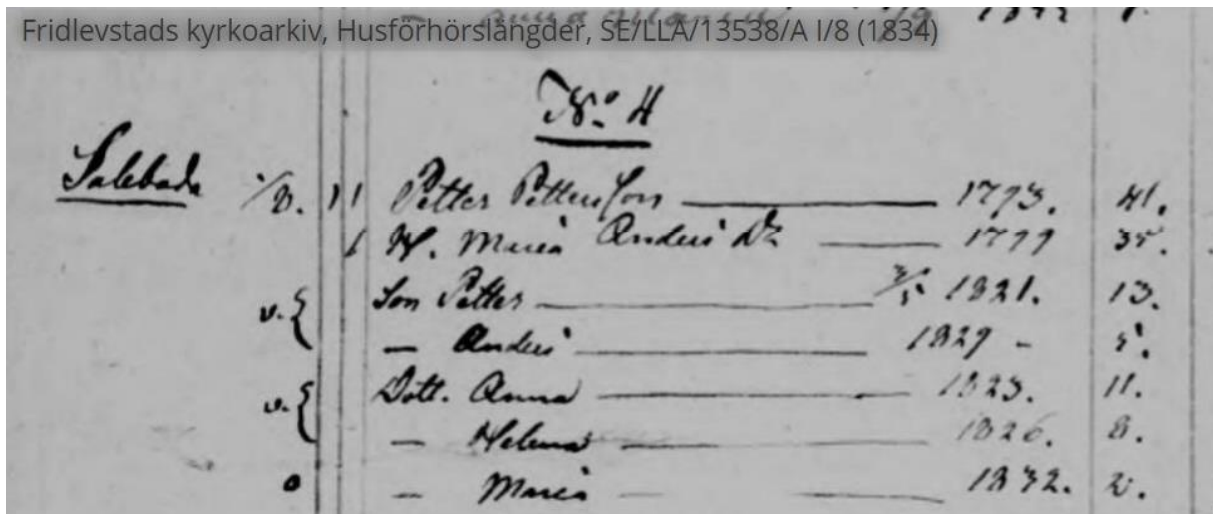 1/9 1832
Fridlevstads kyrkoarkiv, Husförhörslängder, SE/LLA/13538/A I/8 (1834)
No. 4
Salebada /v. Petter Petterson 1793. 41.
H. Maria Anders Dr 1799 35.
v. { Son Petter 3/5 1821. 13.
— Anders 1829 - 5.
v. { Dott. Anna 1823. 11.
— Helena 1826. 8.
o — Maria 1832. 2.